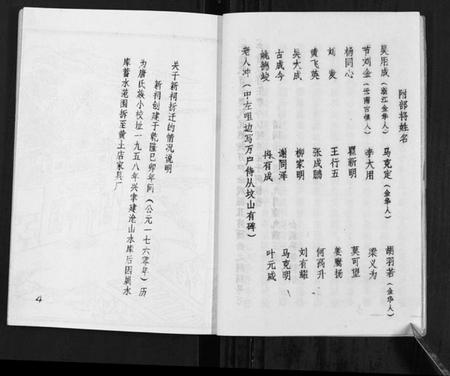 附部将姓名
吴用成(浙江金华人) 马克定(金华人) 胡羽若(金华人)
节刘金(云南百俱人) 李大用 梁义为
杨同心 瞿新明 莫可望
刘发 王行五 姜鹰扬
黄飞英 张成鹏 何高升
吴大成 柳家明 刘有耀
古成今 谢阿泽 马克明
冉有成 叶元咸
老人冲(中左咀边写万户侍从坟山有碑)
关于新祠折迁的情况说明
新祠创建于乾隆巳卯年间(公元一七六零年)历
为唐氏族小校址一九五八年兴李建沧山水库后因蓢水
库蓄水范围拆至黄土店家具厂
4